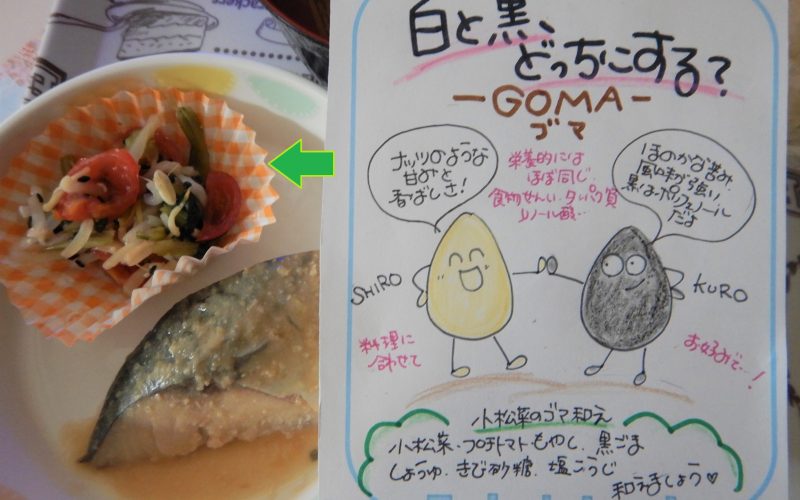 白と黒、
どっちにする?
-GOMA-
ゴマ
ナッツのような
甘みと
香ばしさ!
栄養的には
ほぼ同じ。
食物せんい・タンパク質
リノール酸…
ほのかな苦み、
風味が強い。
黒はポリフェノール
だよ
SHIRO
KURO
料理に
合わせて
お好みで…!
小松菜のゴマ和え
小松菜・プチトマト・もやし、黒ごま
しょうゆ、きび砂糖、塩こうじ
和えましょう♡